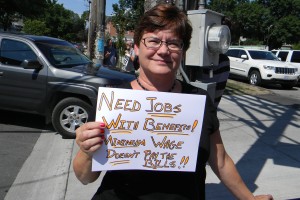 NEED JOBS
WITH BENEFITS!
MINIMUM WAGE
DOESN'T PAY THE
BILLS!!